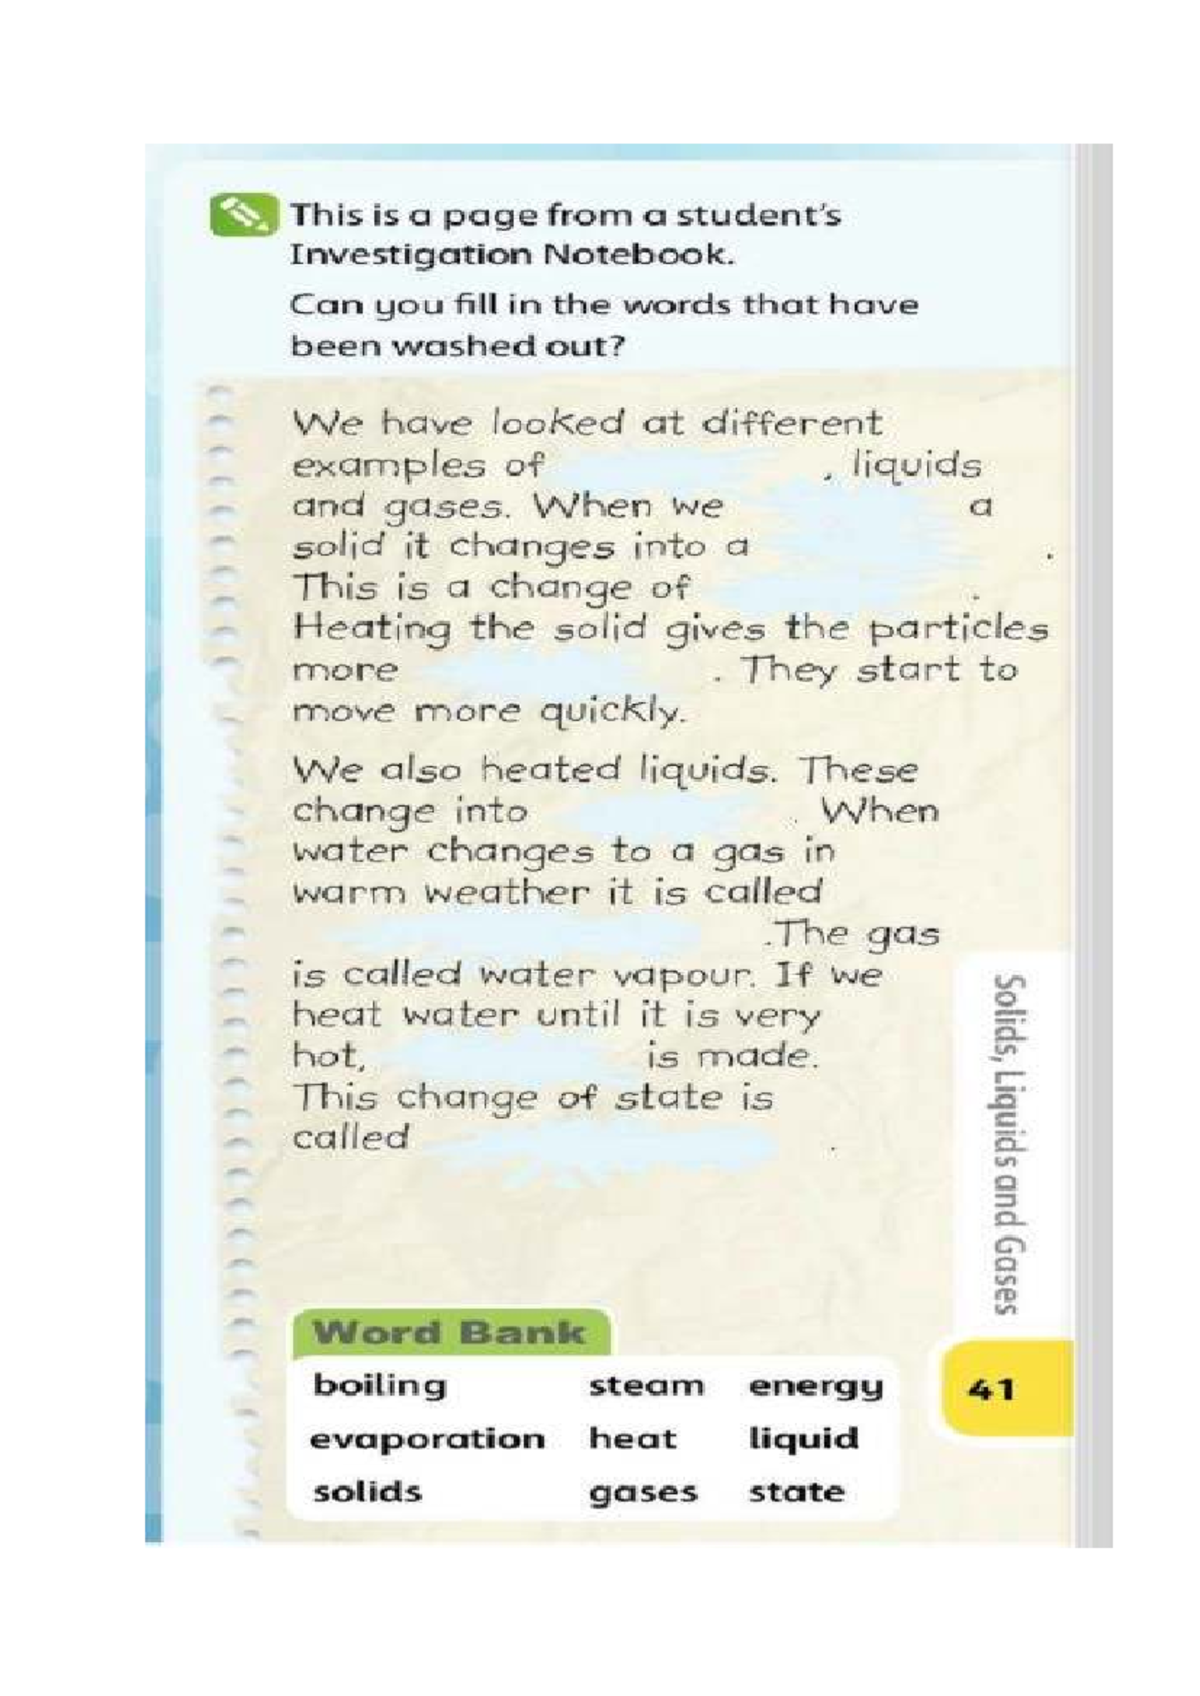 This is a page from a student's
Investigation Notebook.
Can you fill in the words that have
been washed out?
We have looked at different
examples of , liquids
and gases. When we a
solid it changes into a .
This is a change of .
Heating the solid gives the particles
more . They start to
move more quickly.
We also heated liquids. These
change into . When
water changes to a gas in
warm weather it is called
.The gas
is called water vapour. If we
heat water until it is very
hot, is made.
This change of state is
called .
Solids, Liquids and Gases
41
Word Bank
boiling steam energy
evaporation heat liquid
solids gases state